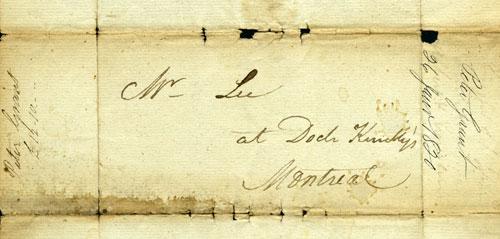 Mr Lee
at Doctr Kimbly's
Montreal
Peter Grant
26 Jany 1831
Peter Grant